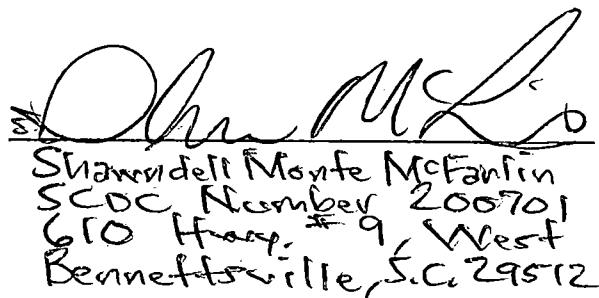 Shawndell Monte McFanlin
SCDC Number 200701
610 Hwy. # 9, West
Bennettsville, S.C. 29512